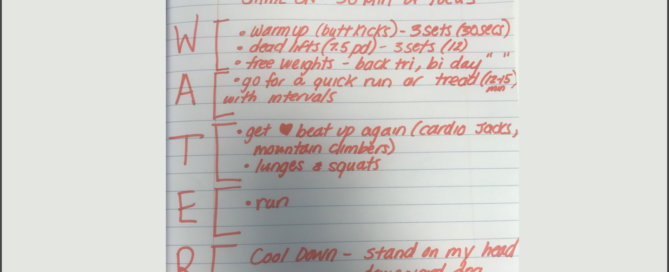 W
• warm up (butt kicks) - 3 sets (30 secs)
• dead lifts (7.5 pd) - 3 sets (12)
• free weights - back tri, bi day " "
A
• go for a quick run or tread (12+5 min)
with intervals
T
• get ♥ beat up again (cardio Jacks,
mountain climbers)
• lunges & squats
E
• run
R
Cool Down - stand on my head